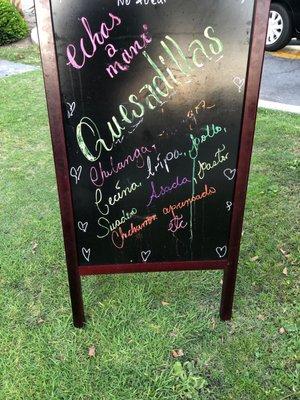 echas
a mani
Quesadillas
Chilanga,
Cecina, tripa, Pollo,
Suadero Asada, Pastor
Chicharron aprensado
etc